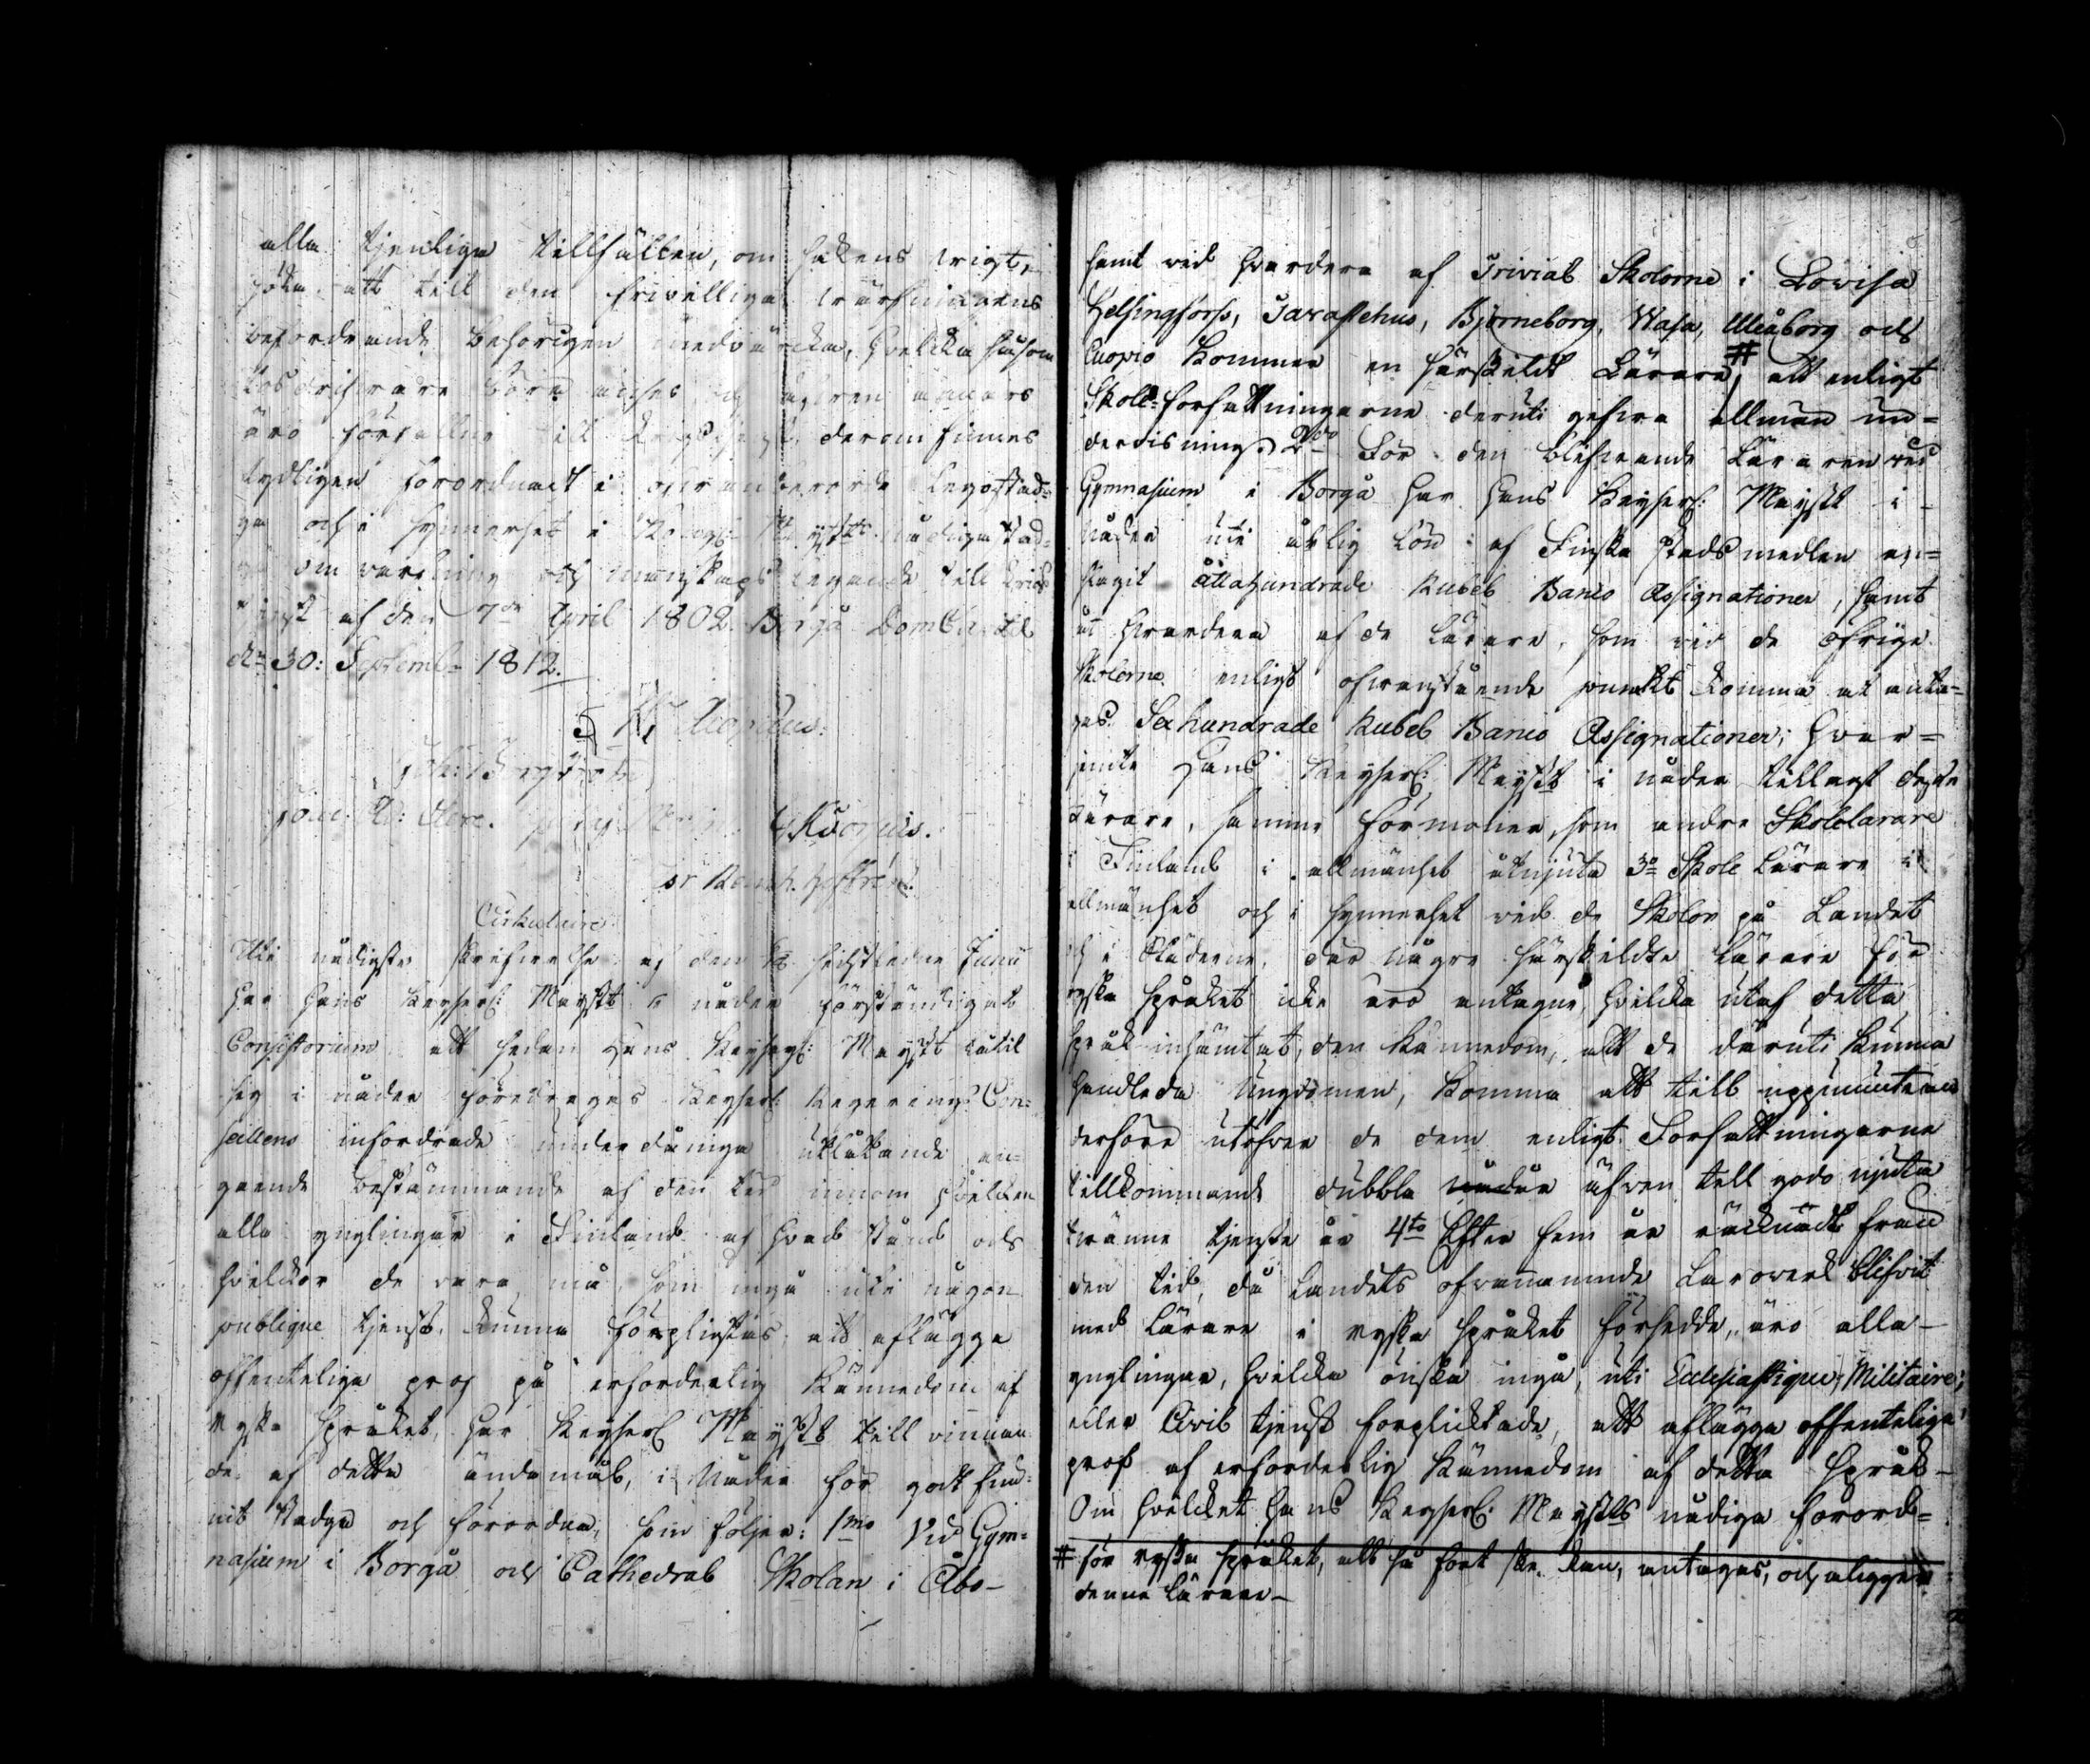 alla tjenliga tillfällen, om sakens wigt,
söka att till den friwilliga wärfningens
befordrande behörigen medwärcka, hwilcka såsom
äro förfallne till Krigstjenst, derom finnes
tydligen förordnadt i ofwanberörde Legostad-
ga och i synnerhet i Kongl: Mayst:ts nådiga Stad-
ga om warfning och manskaps legande till Krigs
tjenst af den 7de April 1802. Borgå DomCapitel
d: 30: Septemb: 1812.
Cirkulaire
Uti nådigste skrifwelse af den sidstledne Junii
har Hans Keyserl: Mayst:t i nåder förständigat
Consistorium att sedan Hans Keyserl: Mayst:t låtit
sig i nåder föredragas Keyserl: Regerings Con-
seillens infordrade underdåniga utlåtande an-
gående bestämmande af den tid innom hwilken
alla ynglingar i Finland af hwad stånd och
hwilckor de wara må, som ingå uti någon
publique tjenst, kunna förpligtas, att aflägga
offenteliga prof på erforderlig kännedom af
ryska språket, har Keyserl Mayst:t till winnan-
de af detta ändamål, i Nåder för godt fun-
nit stadga och förordna, som följer: 1mo Vid Gym-
nasium i Borgå och Cathedral Skolan i Åbo-
samt wid hwardera af Trivial Skolorne i Lovisa
Helsingfors, Tavastehus, Björneborg, Wasa, Uleåborg och
Cuopio kommer en särskildt Lärare # att enligt
Skole-författningarne deruti gifwa allmän un-
derwisning. 2do För den blifwande Läraren wid
Gymnasium i Borgå har Hans Keyserl: Mayst:t i
nåder uti årlig lön af Finska stadsmedlen an-
slagit Åttahundrade Rubel Banco Assignationer, samt
åt hwardera af de Lärare, som wid de öfrige
Skolorne enligt ofwanstående punkt komma at anta-
gas Sexhundrade Rubel Banco Assignationer; hwar-
jemte Hans Keyserl: Mayst:t i nåder tillagt desse
Lärare, samma förmoner, som andre Skolelärare
i Finland i allmänhet åtnjuta 3o Skole Lärare i
allmänhet och i synnerhet wid de Skolor på Landet
och i Städerne, där någre särskildte Lärare för
ryska språket icke äro antagne, hwilka utaf detta
språk inhämtat, den kännedom, att de däruti kunna
handleda Ungdomen, komma att till uppmuntran
derföre utöfwer de dem enligt Författningarne
tillkommande dubbla nåder äfwen till godo njuta
twänne tjenste år 4to Efter fem år räknadt från
den tid, då Landets ofwannämnde Lärowerk blifwit
med Lärare i ryska språket försedde, äro alla-
ynglingar, hwilka önska ingå, uti Ecclesiastique, Militaire,
eller Civil tjenst förplicktade, att aflägga offenteliga
prof af erforderlig kännedom af detta språk-
Om hwilcket Hans Keyserl: Mayst:ts nådiga förord-
# för ryska språket, alt så fort ske kan, antagas, och åligger
denne Lärare-